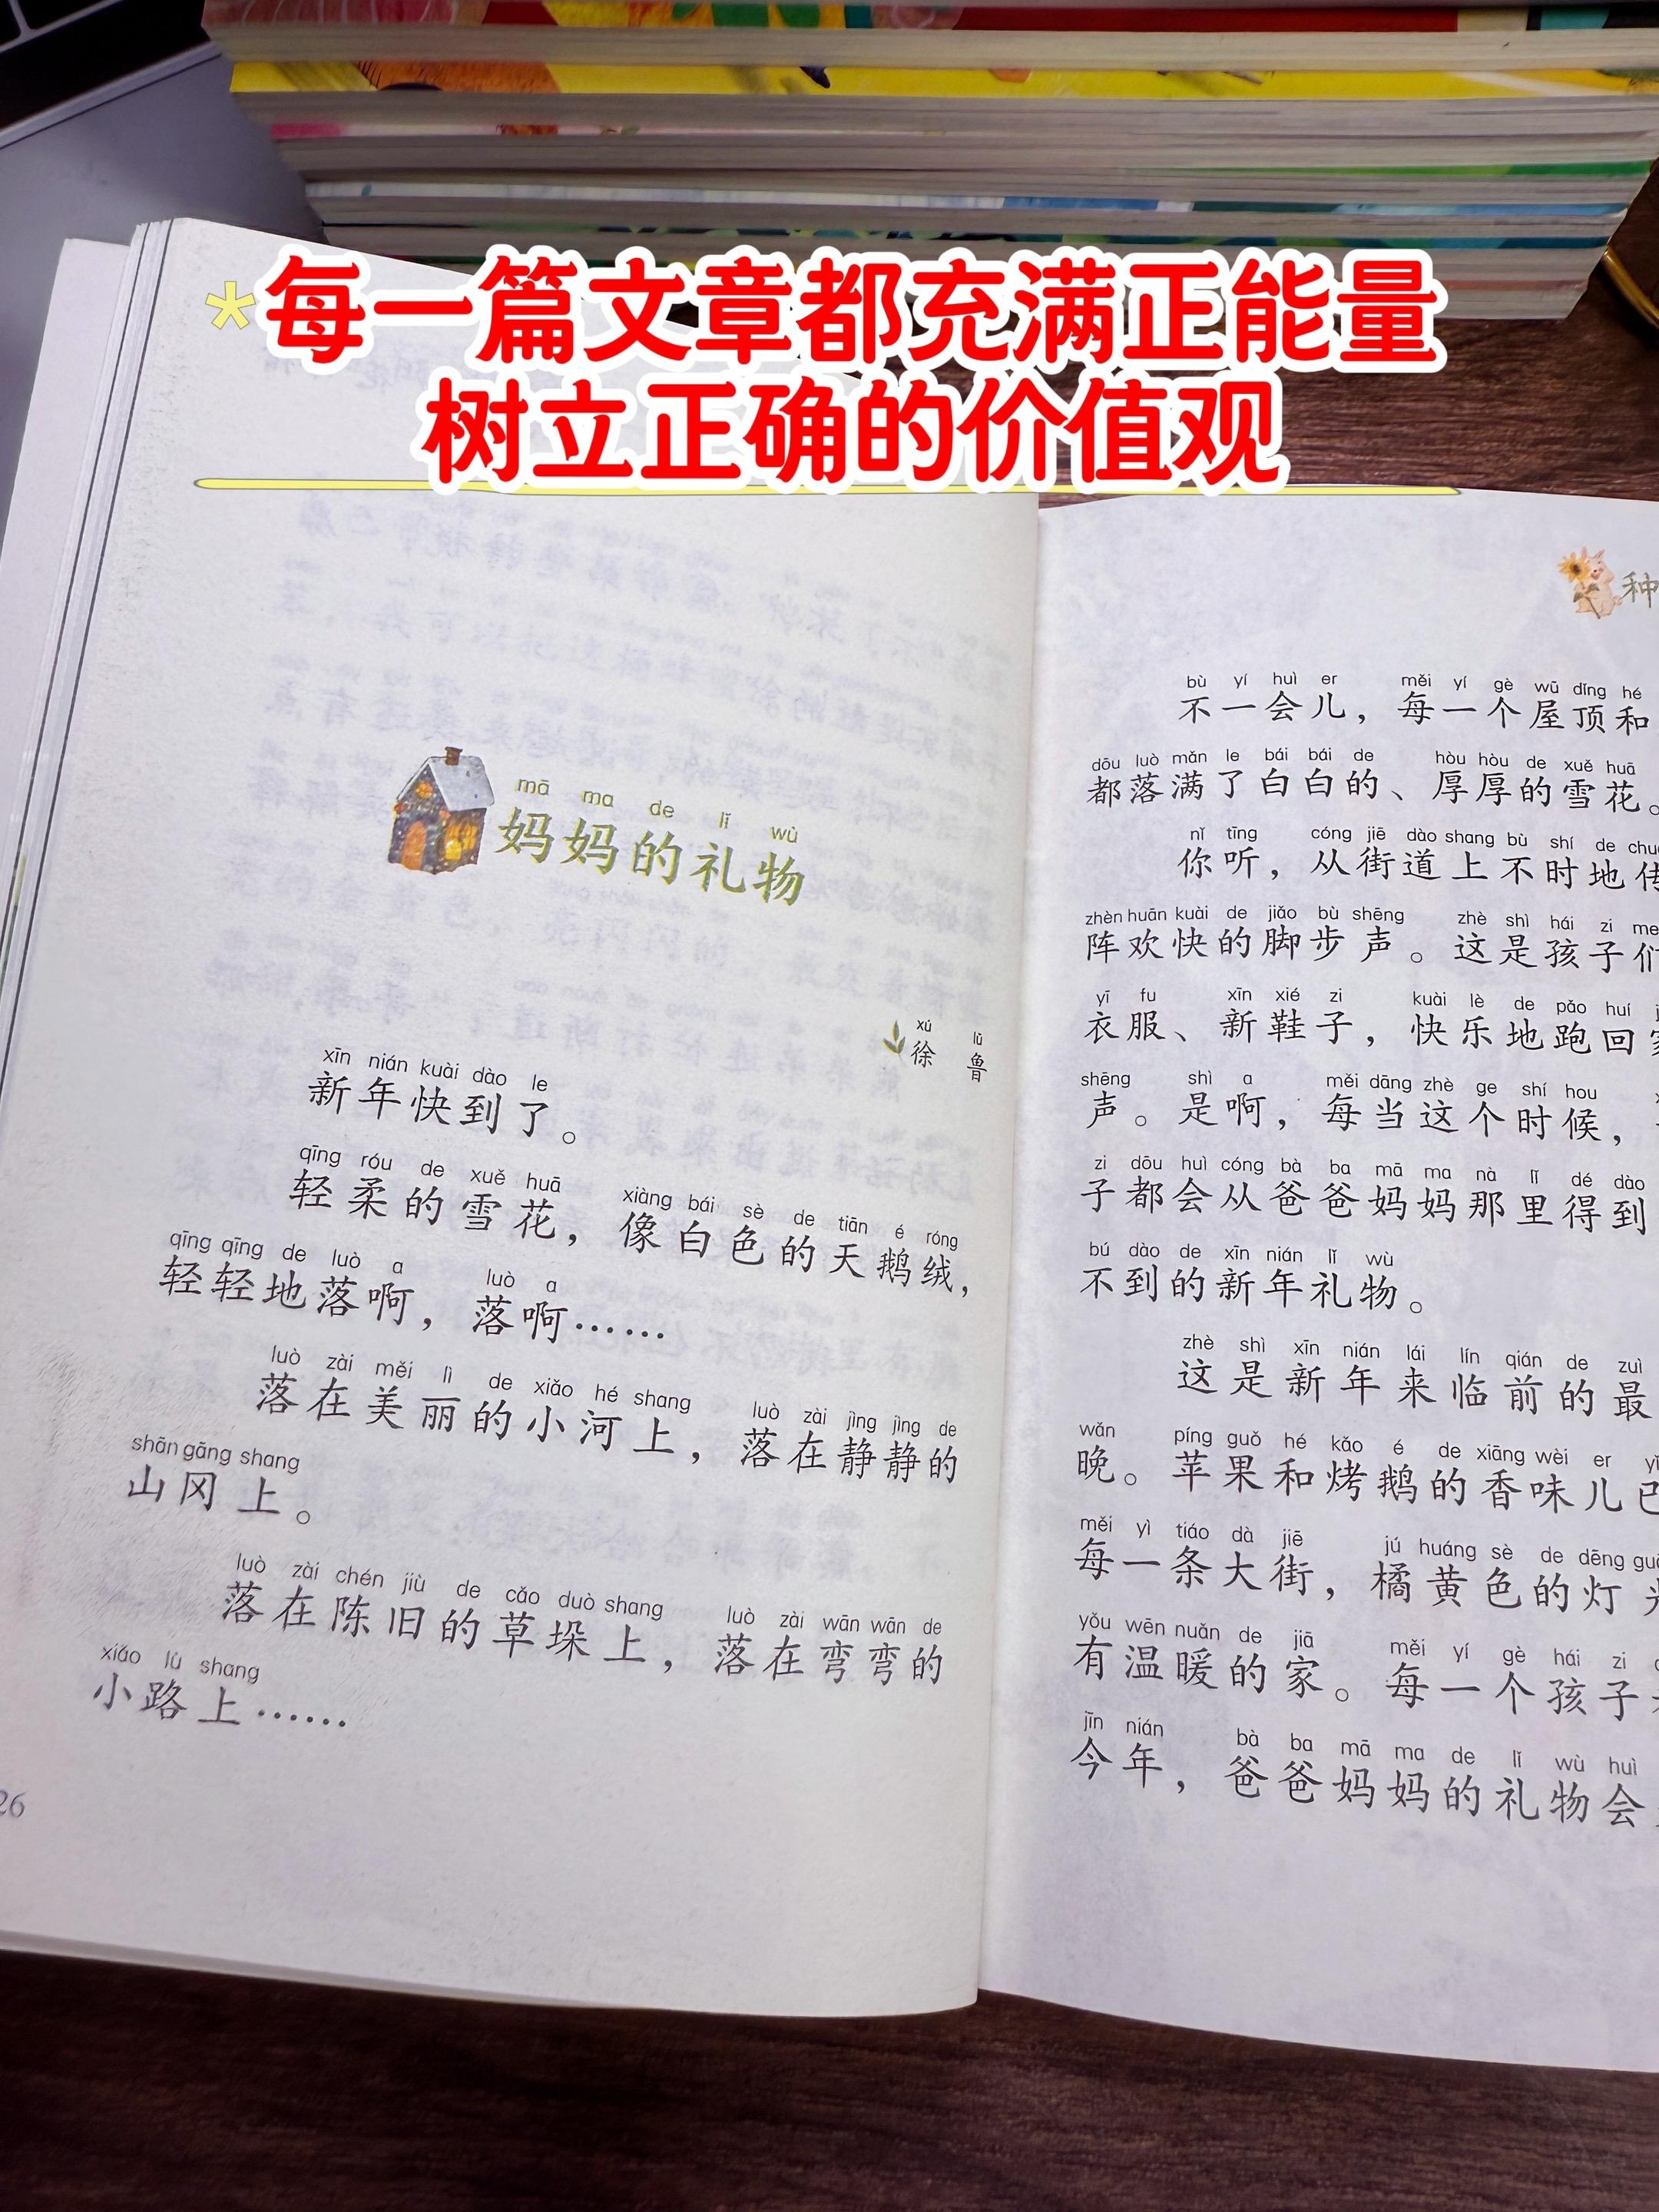 *每一篇文章都充满正能量
树立正确的价值观
mā ma de lǐ wù
妈妈的礼物
xú lǔ
徐 鲁
xīn nián kuài dào le
新年快到了。
qīng róu de xuě huā xiàng bái sè de tiān é róng
轻柔的雪花，像白色的天鹅绒，
qīng qīng de luò a luò a
轻轻地落啊，落啊……
luò zài měi lì de xiǎo hé shang luò zài jìng jìng de
落在美丽的小河上，落在静静的
shān gāng shang
山冈上。
luò zài chén jiù de cǎo duò shang luò zài wān wān de
落在陈旧的草垛上，落在弯弯的
xiǎo lù shang
小路上……
26
种
bù yí huì er měi yí gè wū dǐng hé
不一会儿，每一个屋顶和
dōu luò mǎn le bái bái de hòu hòu de xuě huā
都落满了白白的、厚厚的雪花。
nǐ tīng cóng jiē dào shang bù shí de
你听，从街道上不时地传
zhèn huān kuài de jiǎo bù shēng zhè shì hái zi
阵欢快的脚步声。这是孩子们
yī fu xīn xié zi kuài lè de pǎo huí
衣服、新鞋子，快乐地跑回家
shēng shì a měi dāng zhè ge shí hou
声。是啊，每当这个时候，
zi dōu huì cóng bà ba mā ma nà lǐ dé dào
子都会从爸爸妈妈那里得到
bú dào de xīn nián lǐ wù
不到的新年礼物。
zhè shì xīn nián lái lín qián de zuì
这是新年来临前的最
wǎn píng guǒ hé kǎo é de xiāng wèi er
晚。苹果和烤鹅的香味儿已
měi yì tiáo dà jiē jú huáng sè de dēng
每一条大街，橘黄色的灯光
yǒu wēn nuǎn de jiā měi yí gè hái zi
有温暖的家。每一个孩子
jīn nián bà ba mā ma de lǐ wù huì
今年，爸爸妈妈的礼物会